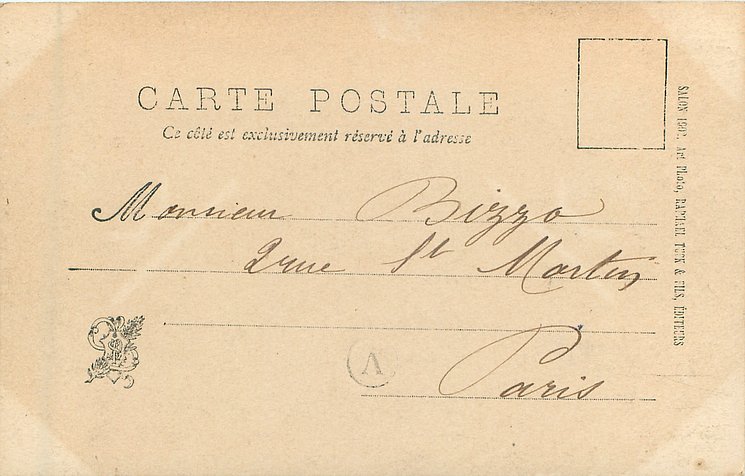 CARTE POSTALE
Ce côté est exclusivement réservé à l'adresse
Monsieur Bizzo
2 rue St Martin
Paris
V
SALON 1902. Art Photo, RAPHAEL TUCK & FILS, ÉDITEURS